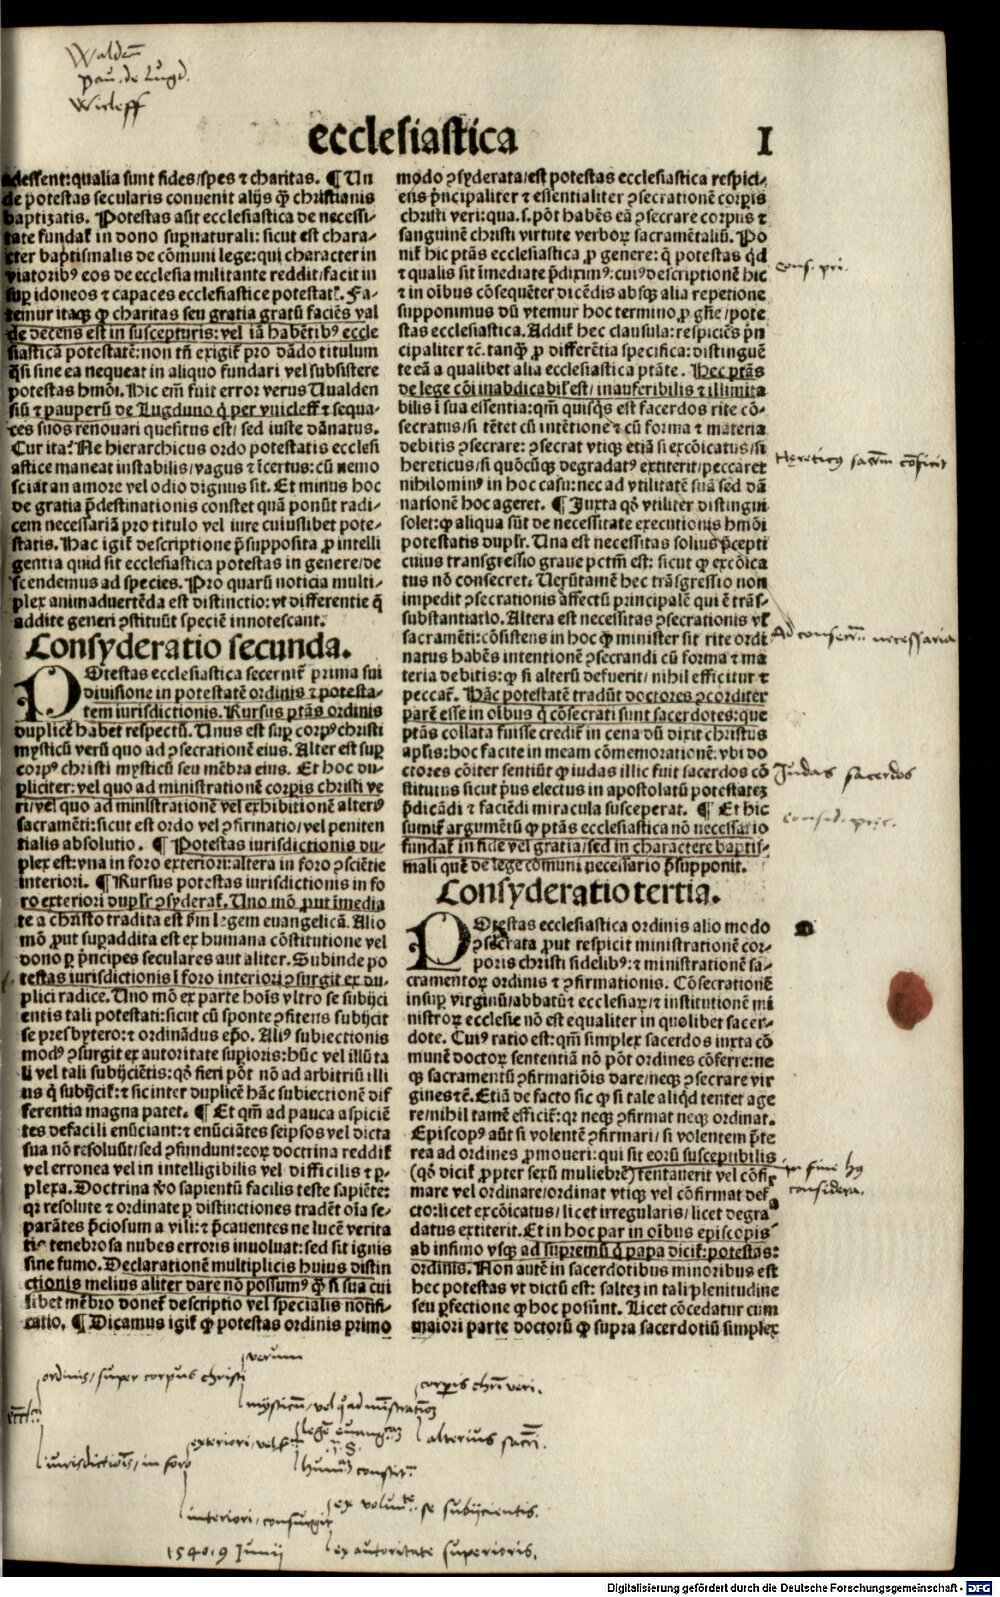 Walden̄
pau. de Lugd.
Wicleff
ecclesiastica
I
adessent: qualia sunt fides/spes ⁊ charitas. ¶ Un
de potestas secularis conuenit alijs q̄ christianis
baptizatis. Potestas aūt ecclesiastica de necessi-
tate fundať in dono supnaturali: sicut est chara-
cter baptismalis de cōmuni lege: qui character in
viatorib⁹ eos de ecclesia militante reddit/facit in
sup idoneos ⁊ capaces ecclesiastice potestať. Fa-
temur itaqꝫ ꝙ charitas seu gratia gratū faciēs val
de decens est in suscepturis: vel iā habētib⁹ eccle
siasticā potestatē: non tn̄ exigiť pro dādo titulum
q̄si sine ea nequeat in aliquo fundari vel subsistere
potestas hmōi. Hic em̄ fuit error verus Uualden
siū ⁊ pauperū de Lugduno q̄ per vuicleff ⁊ sequa-
ces suos renouari quesitus est/ sed iuste dānatus.
Cur ita? Ne hierarchicus ordo potestatis ecclesi
astice maneat instabilis/vagus ⁊ īcertus: cū nemo
sciat an amore vel odio dignus sit. Et minus hoc
de gratia p̄destinationis constet quā ponūt radi-
cem necessariā pro titulo vel iure cuiuslibet pote-
statis. Hac igiť descriptione p̄supposita ꝓ intelli
gentia quid sit ecclesiastica potestas in genere/de
scendemus ad species. Pro quarū noticia multi-
plex animaduertēda est distinctio: vt differentie q̄
addite generi ꝯstituūt speciē innotescant.
Consyderatio secunda.
Potestas ecclesiastica secerniť prima sui
diuisione in potestatē ordinis ⁊ potesta-
tem iurisdictionis. Rursus ptās ordinis
duplicē habet respectū. Unus est sup corp⁹ christi
mysticū verū quo ad ꝯsecrationē eius. Alter est sup
corp⁹ christi mysticū seu mēbra eius. Et hoc du-
pliciter: vel quo ad ministrationē corpis christi ve
ri/vel quo ad ministrationē vel exhibitionē alteri⁹
sacramēti: sicut est ordo vel ꝯfirmatio/vel peniten
tialis absolutio. ¶ Potestas iurisdictionis du-
plex est: vna in foro exteriori: altera in foro ꝯsciētie
interiori. ¶ Rursus potestas iurisdictionis in fo
ro exteriori duplr̄ ꝯsyderať. Uno mō prout īmedia
te a christo tradita est p̄m legem euangelicā. Alio
mō prout supaddita est ex humana cōstitutione vel
dono p p̄ncipes seculares aut aliter. Subinde po
testas iurisdictionis ī foro interiori ꝯsurgit ex du-
plici radice. Uno mō ex parte hoīs vltro se subijci
entis tali potestati: sicut cū sponte ꝯfitens subijcit
se presbytero: ⁊ ordinādus ep̄o. Ali⁹ subiectionis
mod⁹ ꝯsurgit ex autoritate supioris: hūc vel illū ta
li vel tali subijciētis: qď fieri pōt nō ad arbitriū illi
us q̄ subijciť: ⁊ sic inter duplicē hāc subiectionē dif
ferentia magna patet. ¶ Et qm̄ ad pauca aspiciē
tes defacili enūciant: ⁊ enūciātes seipsos vel dicta
sua nō resoluūt/sed ꝯfundunt: eoꝝ doctrina reddiť
vel erronea vel in intelligibilis vel difficilis ⁊ p-
plexa. Doctrina v̄o sapientū facilis teste sapiēte:
qꝛ resolute ⁊ ordinate p distinctiones tradēt oīa se-
parātes p̄ciosum a vili: ⁊ p̄cauentes ne lucē verita
tis tenebrosa nubes erroris inuoluat: sed sit ignis
sine fumo. Declarationē multiplicis huius distin
ctionis melius aliter dare nō possum⁹ q̄ si sua cui
libet mēbro doneť descriptio vel specialis notifi-
catio. ¶ Dicamus igiť ꝙ potestas ordinis primo
modo ꝯsyderata/est potestas ecclesiastica respici-
ens p̄ncipaliter ⁊ essentialiter ꝯsecrationē corpis
christi veri: qua .s. pōt habēs eā ꝯsecrare corpus ⁊
sanguinē christi virtute verboꝝ sacramētaliū. Po
niť hic ptās ecclesiastica ꝓ genere: q̄ potestas qď
⁊ qualis sit īmediate p̄dixim⁹: cui⁹ descriptionē hic
⁊ in oībus cōsequēter dicēdis absqꝫ alia repetione
supponimus dū vtemur hoc termino ꝓ gn̄e/pote
stas ecclesiastica. Addiť hec clausula: respiciēs p̄n
cipaliter ⁊c̄. tanq̄ ꝓ differētia specifica: distinguē
te eā a qualibet alia ecclesiastica ptāte. Hec ptās
de lege cōi inabdicabil' est/ inauferibilis ⁊ illimita
bilis ī sua essentia: qm̄ quisq̄s est sacerdos rite cō-
secratus/si tētet cū intētione ⁊ cū forma ⁊ materia
debitis ꝯsecrare: ꝯsecrat vtiqꝫ etiā si excōicatus/si
hereticus/si quōcūqꝫ degradat⁹ extiterit/peccaret
nihilomin⁹ in hoc casu: nec ad vtilitatē suā sed dā
nationē hoc ageret. ¶ Juxta qď vtiliter distingui
solet: ꝙ aliqua sūt de necessitate executionis hmōi
potestatis duplr̄. Una est necessitas solius p̄cepti
cuius transgressio graue pctm̄ est: sicut ꝙ excōica
tus nō consecret. Uerūtamē hec trāsgressio non
impedit ꝯsecrationis affectū principalē qui ē trās-
substantiatio. Altera est necessitas ꝯsecrationis vl'
sacramēti: cōsistens in hoc ꝙ minister sit rite ordi
natus habēs intentionē ꝯsecrandi cū forma ⁊ ma
teria debitis: ꝙ si alterū defuerit/ nihil efficitur ⁊
peccať. Hāc potestatē tradūt doctores ꝯcorditer
parē esse in oībus q̄ cōsecrati sunt sacerdotes: que
ptās collata fuisse crediť in cena dū dixit christus
aplis: hoc facite in meam cōmemorationē: vbi do
ctores cōiter sentiūt ꝙ iudas illic fuit sacerdos cō
stitutus sicut p̄us electus in apostolatū potestatē
p̄dicādi ⁊ faciēdi miracula susceperat. ¶ Et hic
sumiť argumētū ꝙ ptās ecclesiastica nō necessario
fundať in fide vel gratia/sed in charactere baptis-
mali quē de lege cōmuni necessario p̄supponit.
Consyderatio tertia.
Potestas ecclesiastica ordinis alio modo
ꝯsecrata prout respicit ministrationē cor-
poris christi fidelib⁹: ⁊ ministrationē sa-
cramentoꝝ ordinis ⁊ ꝯfirmationis. Cōsecrationē
insup virginū/abbatū ⁊ ecclesiaꝝ/⁊ institutionē mi
nistroꝝ ecclesie nō est equaliter in quolibet sacer-
dote. Cui⁹ ratio est: qm̄ simplex sacerdos iuxta cō
munē doctoꝝ sententiā nō pōt ordines cōferre: ne
qꝫ sacramentū ꝯfirmatiōis dare/neqꝫ ꝯsecrare vir
gines ⁊c̄. Etiā de facto sic ꝙ si tale aliqď tentet age
re/nihil tamē efficiť: qꝛ neqꝫ ꝯfirmat neqꝫ ordinat.
Episcop⁹ aūt si volentē ꝯfirmari/ si volentem p̄te
rea ad ordines ꝓmoueri: qui sit eorū susceptibilis
(qď diciť ꝓpter sexū muliebrē) tentauerit vel cōfir
mare vel ordinare/ordinat vtiqꝫ vel cōfirmat de fa
cto: licet excōicatus/ licet irregularis/ licet degra
datus extiterit. Et in hoc par in oībus episcopis
ab infimo vsqꝫ ad supremū q̄ papa diciť: potestas:
ordinis. Non autē in sacerdotibus minoribus est
hec potestas vt dictū est: saltez in tali plenitudine
seu pfectione ꝙ hoc possunt. Licet cōcedatur cum
maiori parte doctorū ꝙ supra sacerdotiū simplex
cons. pri.
Hereticus sacrm̄ cōficit
Ad consecr̄. necessaria
Judas sacerdos
consid. pri.
in fine hui⁹
considera.
verum
ordinis/ super corpus christi
mysticū/ vel q̄ ad mīstrationē
corporis chr̄i veri.
alterius sacr̄i.
exteriori/ vel
legē euangelicā
humā constit.
iurisdictiōis/ in foro
interiori/ consurgit
ex volūte se subijcientis.
ex autoritate superioris.
1540. 9 Junij
Digitalisierung gefördert durch die Deutsche Forschungsgemeinschaft - DFG